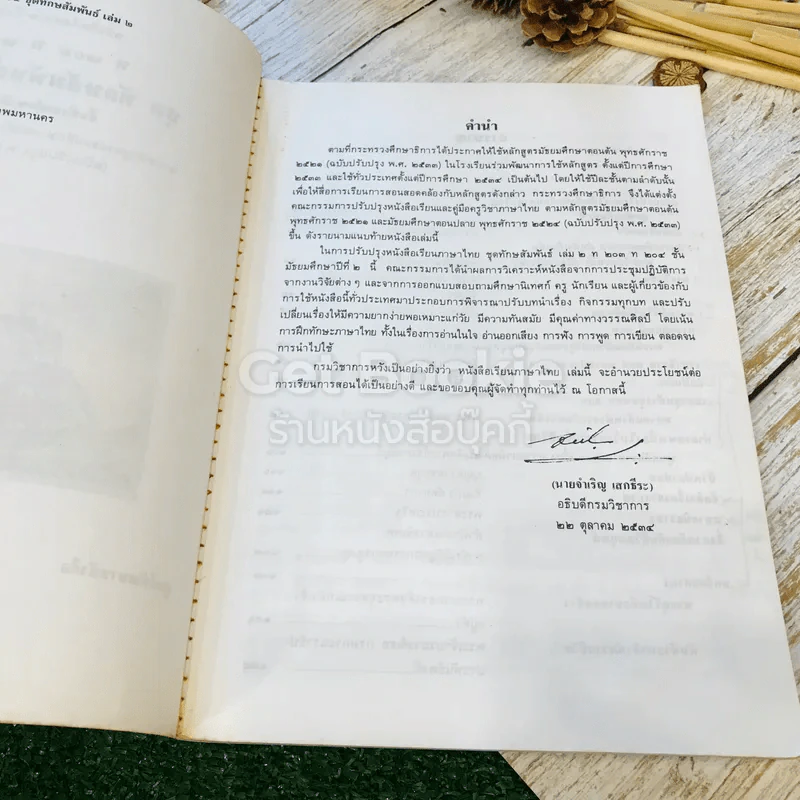 ชุดทักษสัมพันธ์ เล่ม ๒
พมหานคร
คำนำ
ตามที่กระทรวงศึกษาธิการได้ประกาศให้ใช้หลักสูตรมัธยมศึกษาตอนต้น พุทธศักราช
๒๕๒๑ (ฉบับปรับปรุง พ.ศ. ๒๕๓๓) ในโรงเรียนร่วมพัฒนาการใช้หลักสูตร ตั้งแต่ปีการศึกษา
๒๕๓๓ และใช้ทั่วประเทศตั้งแต่ปีการศึกษา ๒๕๓๔ เป็นต้นไป โดยให้ใช้ปีละชั้นตามลำดับนั้น
เพื่อให้สื่อการเรียนการสอนสอดคล้องกับหลักสูตรดังกล่าว กระทรวงศึกษาธิการ จึงได้แต่งตั้ง
คณะกรรมการปรับปรุงหนังสือเรียนและคู่มือครูวิชาภาษาไทย ตามหลักสูตรมัธยมศึกษาตอนต้น
พุทธศักราช ๒๕๒๑ และมัธยมศึกษาตอนปลาย พุทธศักราช ๒๕๒๔ (ฉบับปรับปรุง พ.ศ. ๒๕๓๓)
ขึ้น ดังรายนามแนบท้ายหนังสือเล่มนี้
ในการปรับปรุงหนังสือเรียนภาษาไทย ชุดทักษสัมพันธ์ เล่ม ๒ ท ๒๐๓ ท ๒๐๔ ชั้น
มัธยมศึกษาปีที่ ๒ นี้ คณะกรรมการได้นำผลการวิเคราะห์หนังสือจากการประชุมปฏิบัติการ
จากงานวิจัยต่าง ๆ และจากการออกแบบสอบถามศึกษานิเทศก์ ครู นักเรียน และผู้เกี่ยวข้องกับ
การใช้หนังสือนี้ทั่วประเทศมาประกอบการพิจารณาปรับบทนำเรื่อง กิจกรรมทุกบท และปรับ
เปลี่ยนเรื่องให้มีความยากง่ายพอเหมาะแก่วัย มีความทันสมัย มีคุณค่าทางวรรณศิลป์ โดยเน้น
การฝึกทักษะภาษาไทย ทั้งในเรื่องการอ่านในใจ อ่านออกเสียง การฟัง การพูด การเขียน ตลอดจน
การนำไปใช้
กรมวิชาการหวังเป็นอย่างยิ่งว่า หนังสือเรียนภาษาไทย เล่มนี้ จะอำนวยประโยชน์ต่อ
การเรียนการสอนได้เป็นอย่างดี และขอขอบคุณผู้จัดทำทุกท่านไว้ ณ โอกาสนี้
Get Bookie
ร้านหนังสือบุ๊คกี้
(นายจำเริญ เสกธีระ)
อธิบดีกรมวิชาการ
๒๒ ตุลาคม ๒๕๓๔